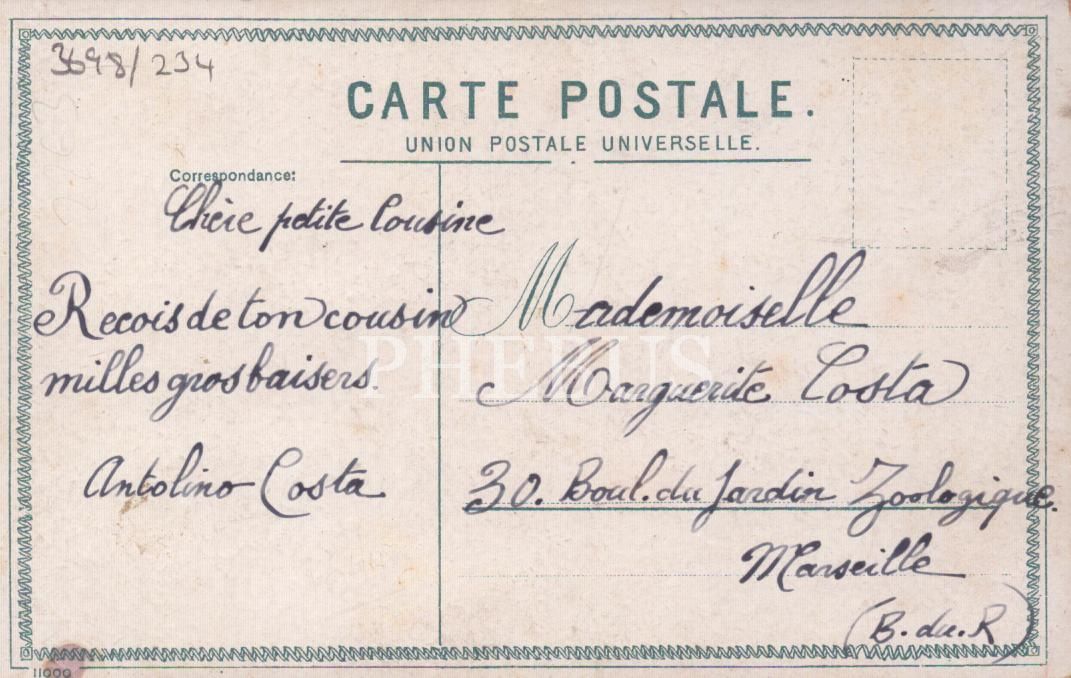 3698/234
CARTE POSTALE.
UNION POSTALE UNIVERSELLE.
Correspondance:
Chère petite Cousine
Recois de ton cousin
milles gros baisers.
Antolino Costa
Mademoiselle
Marguerite Costa
30. Boul. du Jardin Zoologique.
Marseille
(B. du. R)
PHEBUS
11000